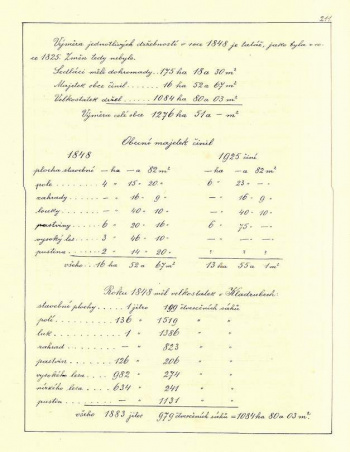 211
Výměra jednotlivých držebností v roce 1848 je tatáž, jako byla v ro-
ce 1825. Změn tedy nebylo.
Sedláci měli dohromady..175 ha 18 a 30 m²
Majetek obce činil....... 16 ha 52 a 67 m²
Velkostatek držel.......1084 ha 80 a 03 m².
Výměra celé obce 1276 ha 51 a – m²
Obecní majetek činil
1848 1925 činí
plocha stavební – ha – a 82 m² – ha – a 82 m²
pole........ 4 " 15 " 20 " 6 " 23 " – "
zahrady...... – " 16 " 9 " – " 16 " 9 "
louky....... – " 40 " 10 " – " 40 " 10 "
pastviny..... 6 " 20 " 16 " 6 " 75 " – "
vysoký les.... 3 " 46 " 10 " – " – " – "
pustina...... 2 " 14 " 20 " " " "
všeho..16 ha 52 a 67 m² 13 ha 55 a 1 m²
Roku 1848 měl velkostatek v Hladenbech:
stavební plochy....1 jiter 169 čtverečních sáhů
polí.......136 " 1519 " "
luk......... 1 " 1386 " "
zahrad...... – " 823 " "
pastvin.....126 " 206 " "
vysokého lesa..982 " 274 " "
nízkého lesa...634 " 241 " "
pustin....... – " 1131 " "
všeho 1883 jiter 979 čtverečních sáhů = 1084 ha 80 a 03 m².